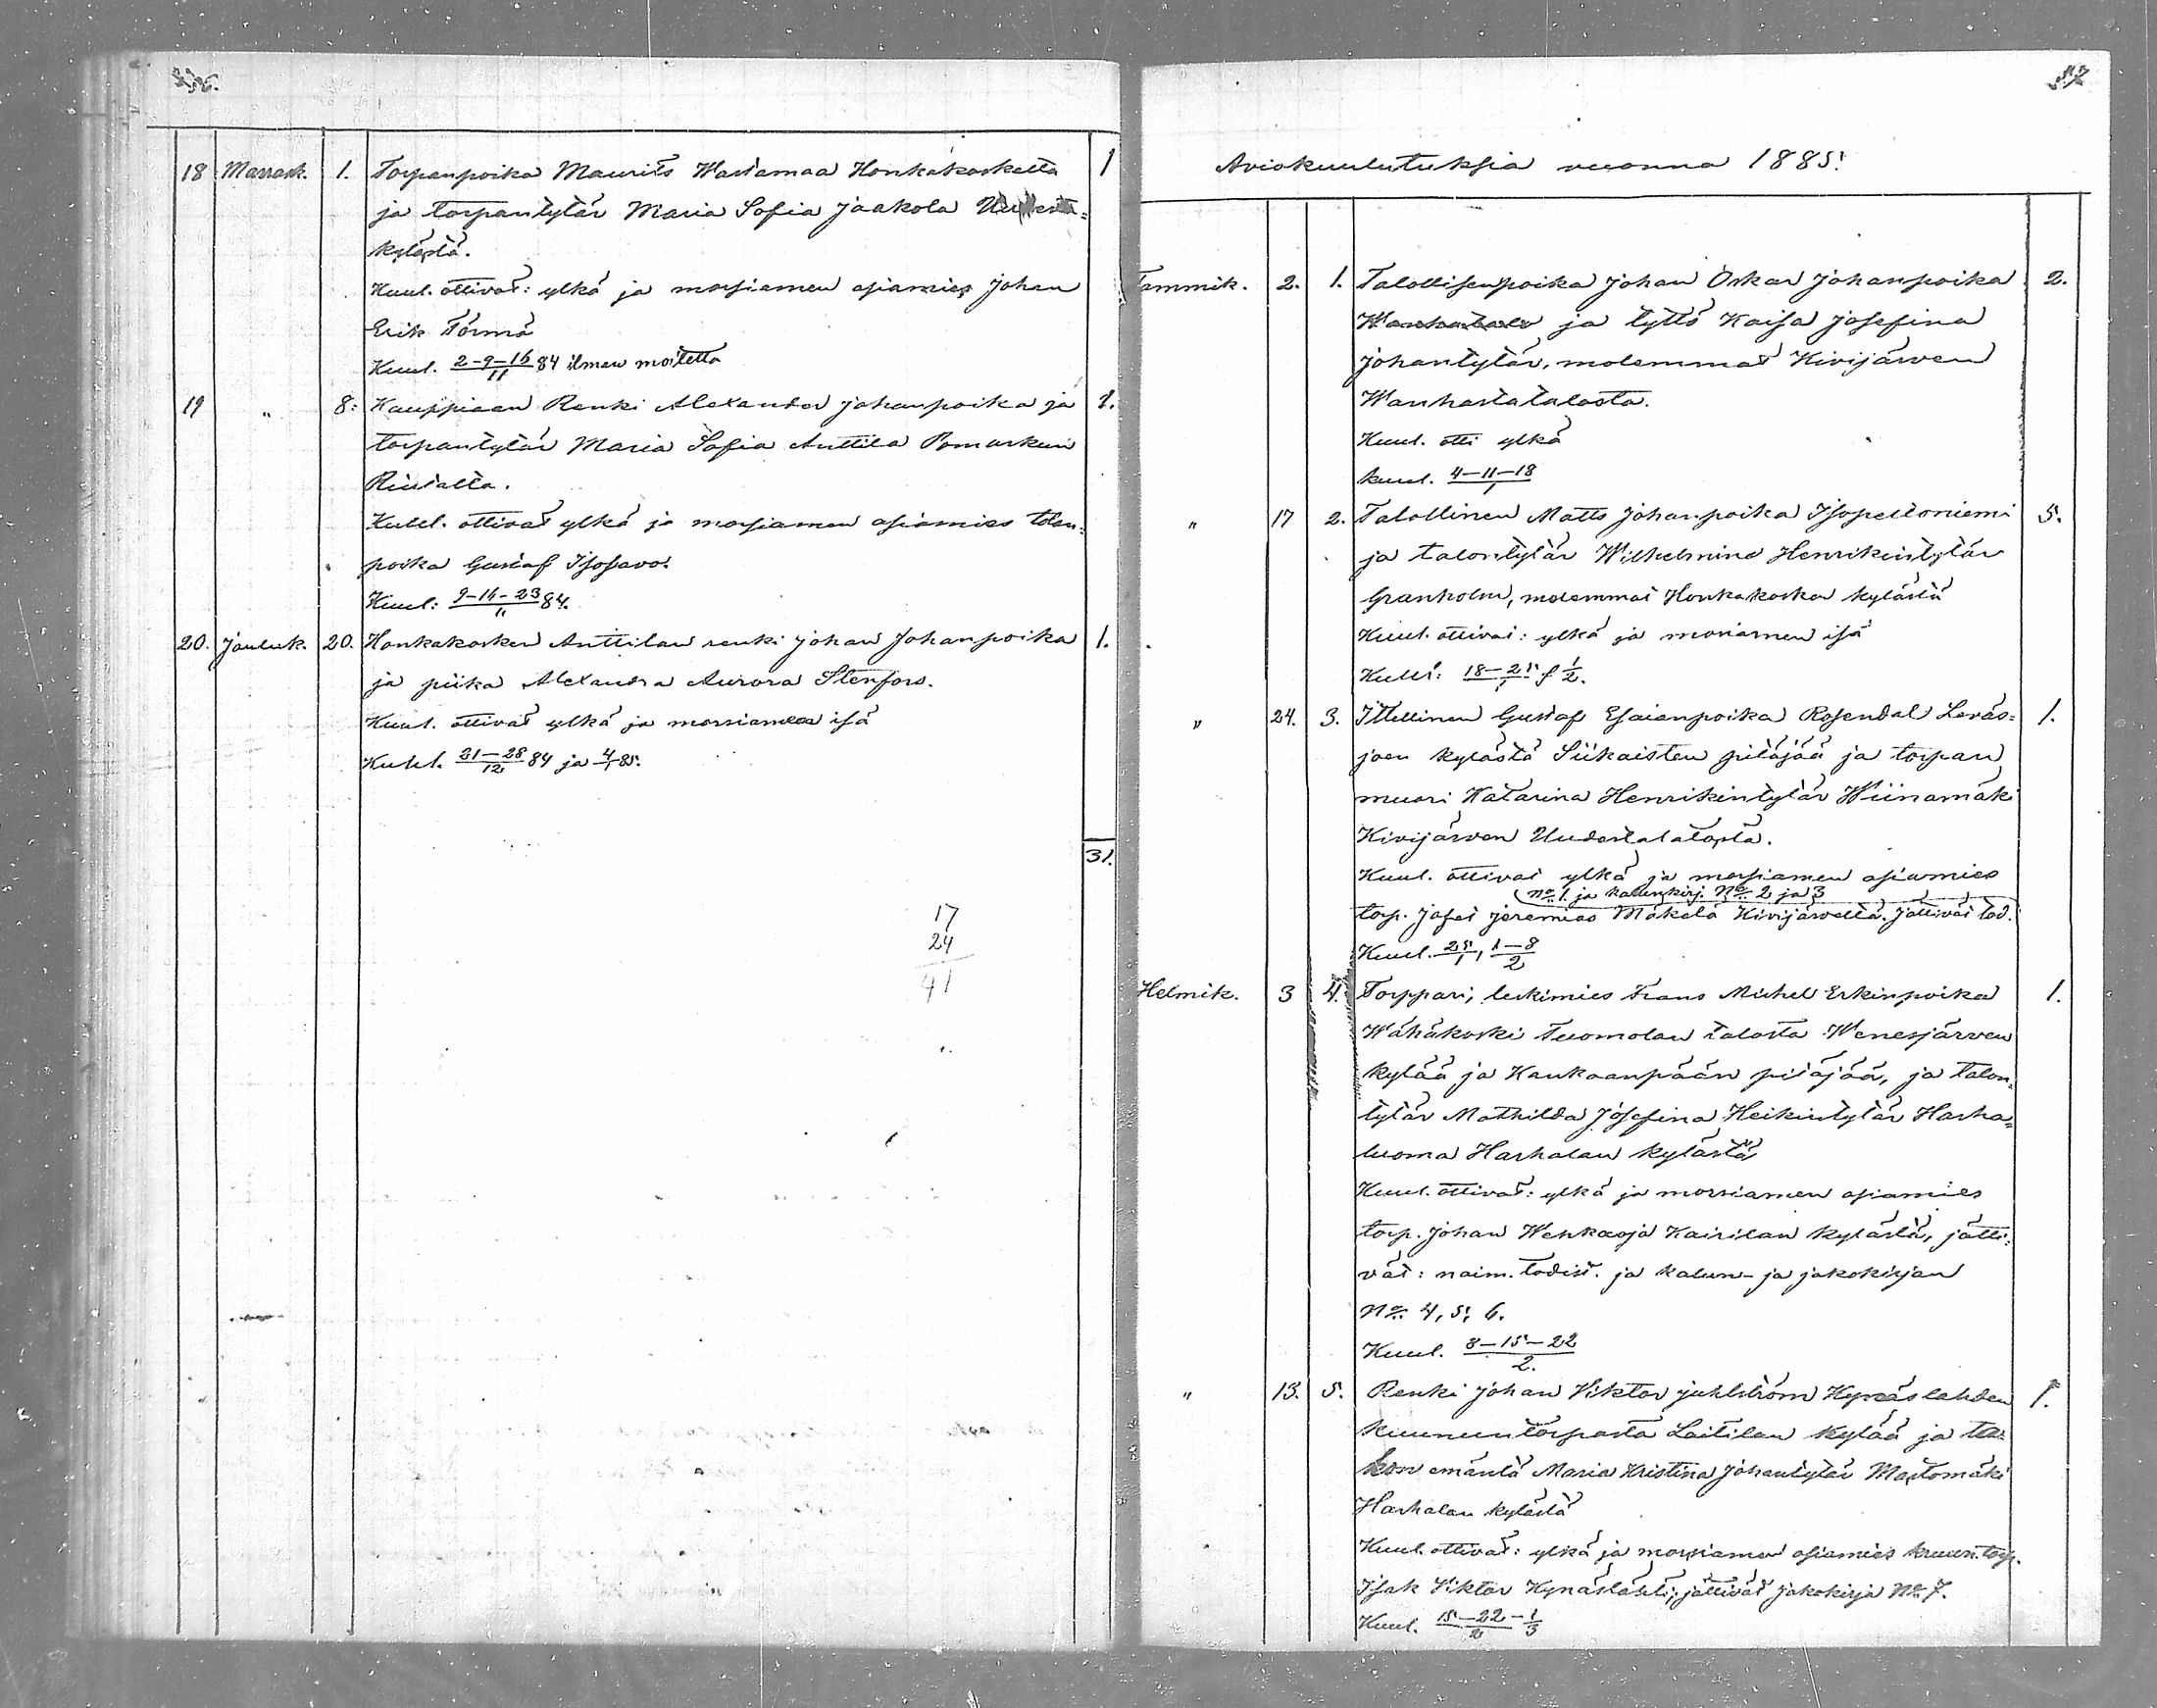 18 Marrask. 1. Torpanpoika Maurits Wastamaa Honkakoskelta 1
ja torpantytär Maria Sofia Jaakola
kylästä.
Kuul. ottivat: ylkä ja morsiamen asiamies Johan
Erik Törmä
Kuul. 2-9-16/11 84 ilman moitetta
19 " 8: Kauppiaan Renki Alexander Johanpoika ja 1.
torpantytär Maria Sofia Anttila Pomarkun
Kuul. ottivat ylkä ja morsiamen asiamies talon=
poika Gustaf Isosavo.
Kuul: 9-16-23/11 84.
20. Jouluk. 20. Honkakosken Anttilan renki Johan Johanpoika 1.
ja piika Alexandra Aurora Stenfors.
Kuul. ottivat ylkä ja morsiamen isä
Kuul. 21-28/12 84 ja 4/1 85.
31.
17
24
41
57
Aviokuulutuksia vuonna 1885.
Tammik. 2. 1. Talollisenpoika Johan Oskar Johanpoika 2.
Wanhatalo ja tyttö Kaisa Josefina
Johantytär, molemmat Kivijärven
Wanhastatalosta.
Kuul. otti ylkä
kuul. 4-11-18/1
" 17 2. Talollinen Matts Johanpoika Isopeltoniemi 5.
ja talontytär Wilhelmina Henrikintytär
Granholm, molemmat Honkakosken kylästä
Kuul. ottivat: ylkä ja morsiamen isä
Kuul: 18-25/1 1/2.
" 24. 3. Itsellinen Gustaf Esaianpoika Rosendal Leväs= 1.
joen kylästä Siikaisten pitäjää ja torpan
muori Katarina Henrikintytär Wiinamäki
Kivijärven Uudestatalosta.
Kuul. ottivat ylkä ja morsiamen asiamies
No 1 ja kalunkirj. No 2 ja 3
torp. Josef Jeremias Mäkelä Kivijärveltä. Jättivät tod.
Kuul. 25/1, 1-8/2
Helmik. 3 4. Torppari, leskimies Frans Mickel Erkinpoika 1.
Wähäkoski Tuomolan talosta Wenesjärven
kylää ja Kankaanpään pitäjää, ja talon=
tytär Mathilda Josefina Heikintytär Harha=
luoma Harhalan kylästä
Kuul. ottivat: ylkä ja morsiamen asiamies
torp. Johan Wehkaoja Kairilan kylästä, jätti=
vät: naim. todist. ja kalun- ja jakokirjan
No 4, 5, 6.
Kuul. 8-15-22/2.
" 13. 5. Renki Johan Viktor Juhlström Kynäslahden 1.
kruununtorpasta Laitilan kylää ja ta=
lon emäntä Maria Kristina Johantytär Mastomäki
Harhalan kylästä
Kuul. ottivat: ylkä ja morsiamen asiamies kruun. torp.
Isak Viktor Kynäslahti; jättivät jakokirja No 7.
Kuul. 15-22/2 - 1/3